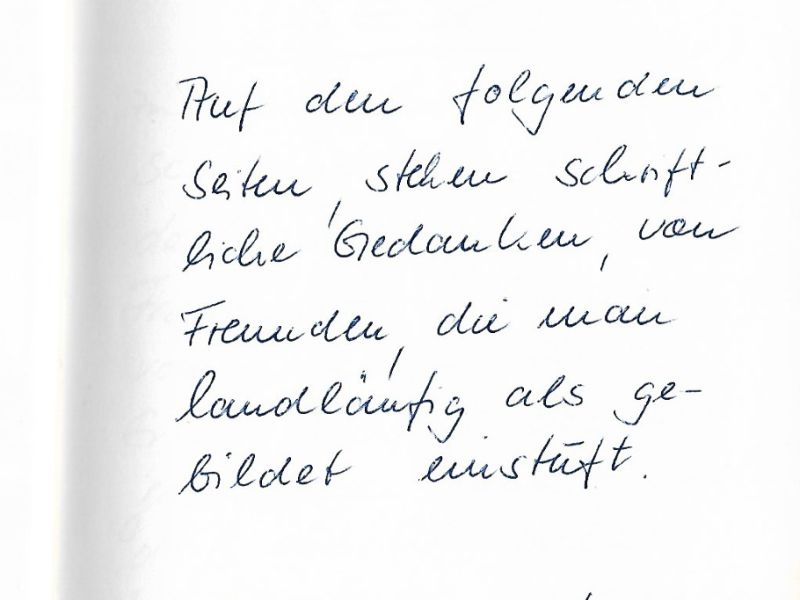 Auf den folgenden
Seiten, stehen schrift-
liche Gedanken, von
Freunden, die man
landläufig als ge-
bildet einstuft.